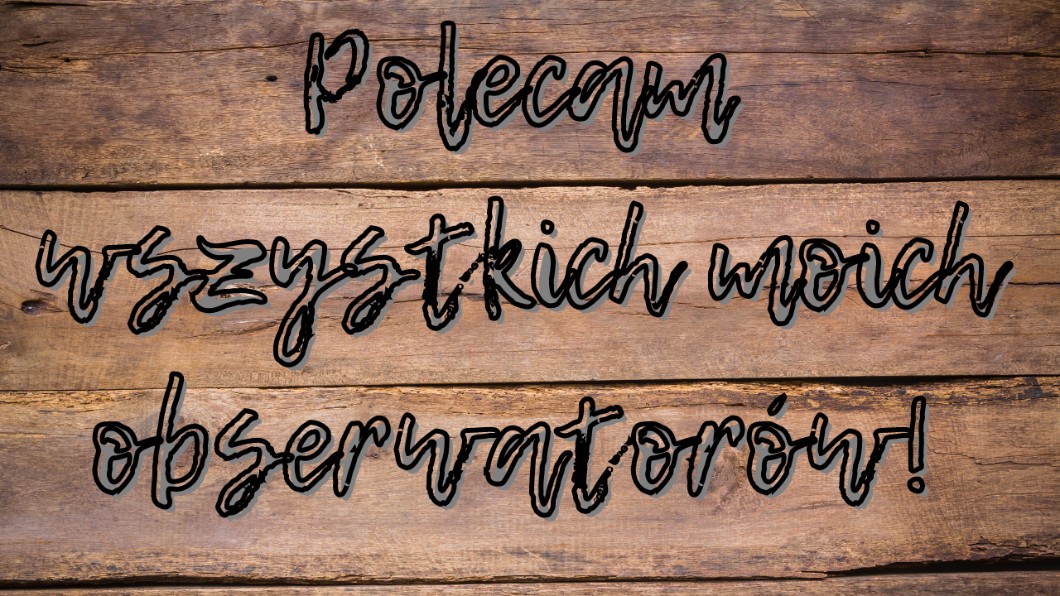 Polecam
wszystkich moich
obserwatorów!